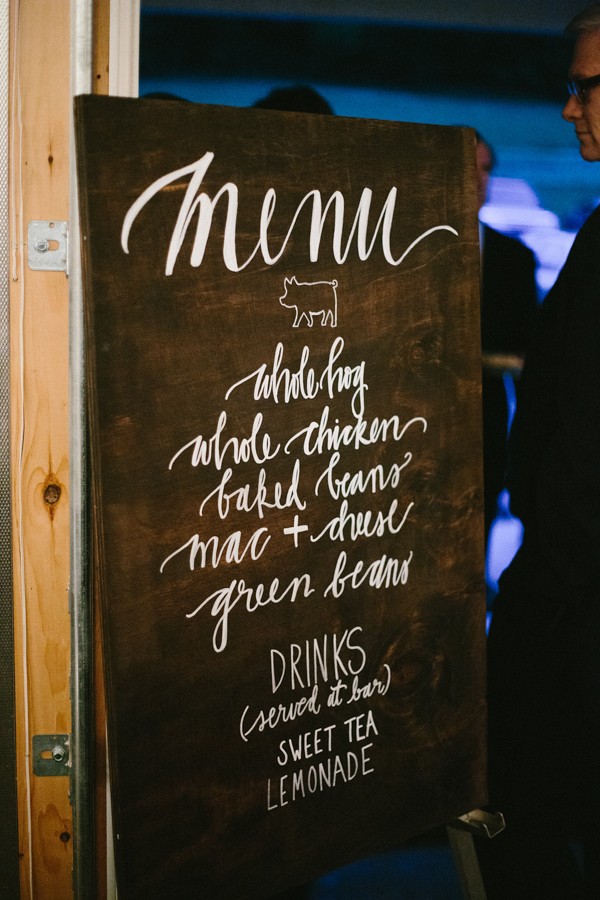 menu
whole hog
whole chicken
baked beans
mac + cheese
green beans
DRINKS
(served at bar)
SWEET TEA
LEMONADE